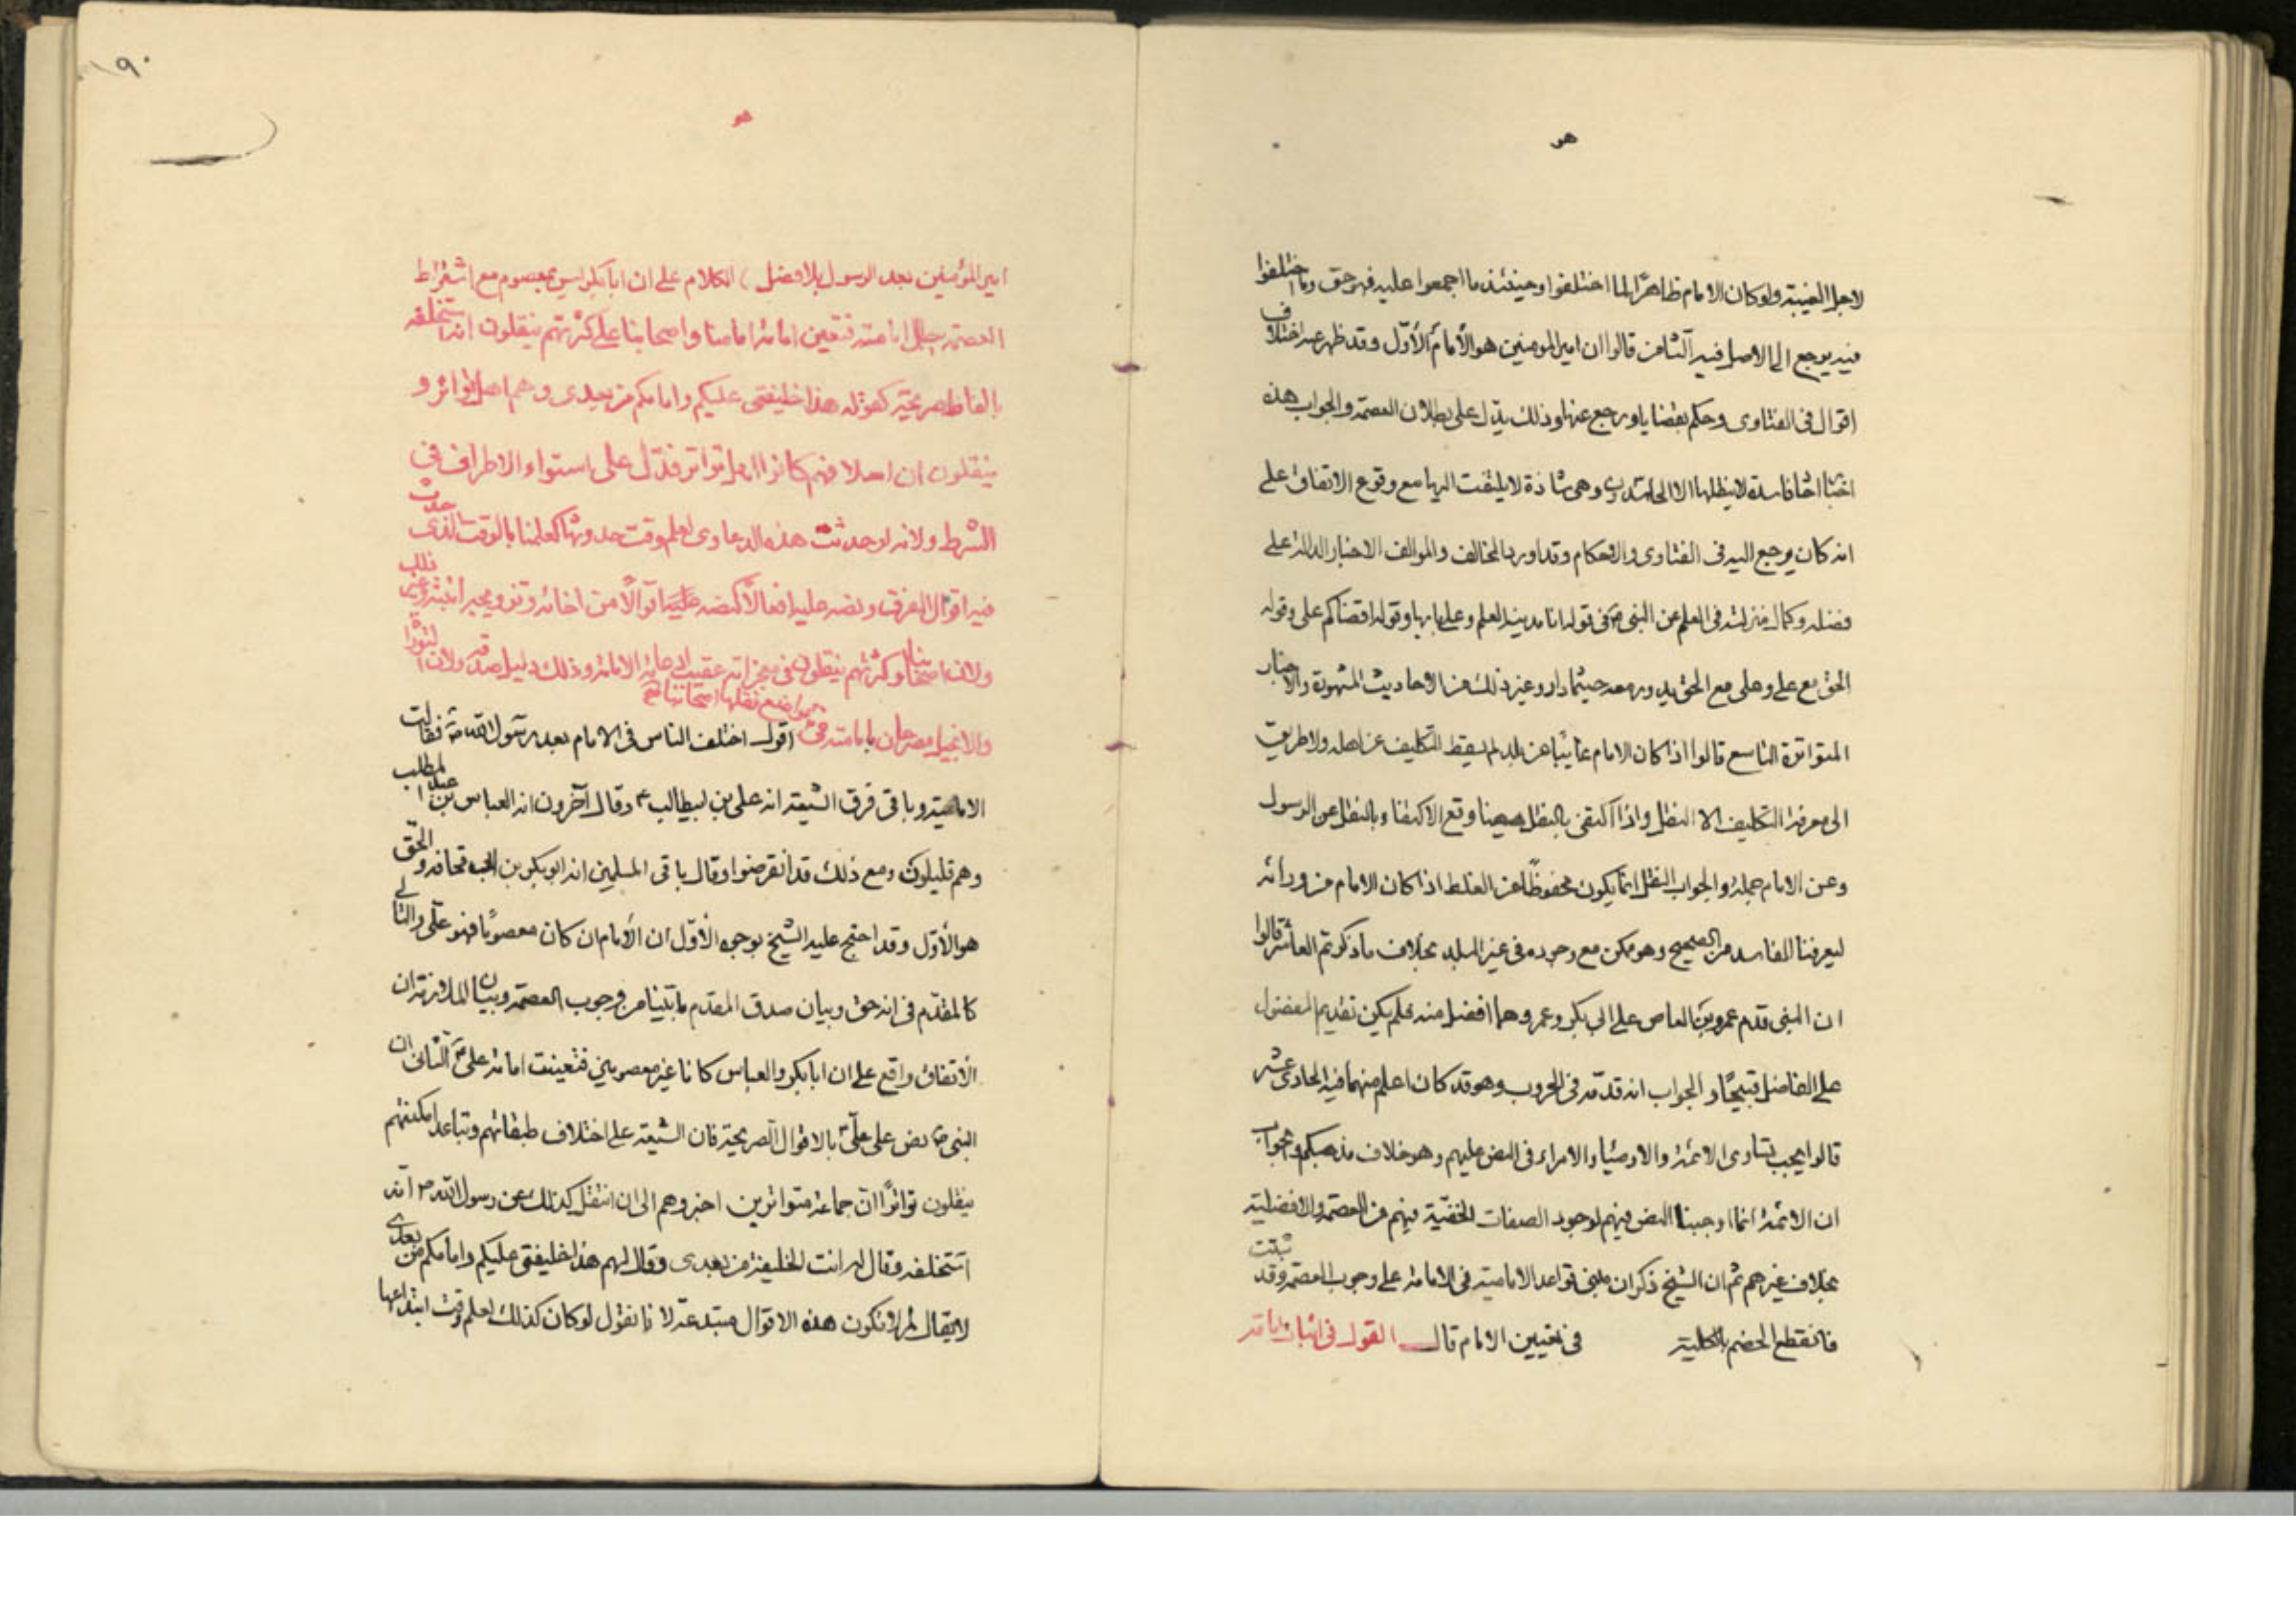 هو
لاجل الغيبة ولوكان الامام ظاهرًا لما اختلفوا وحينئذ ما اجمعوا عليه فهو حق وما اختلفوا
فيه يرجع الى الاصل فيه الثامن قالوا ان امير المومنين هو الأمام الأوّل وقد ظهر عنه اختلاف
اقوال فى الفتاوى وحكم بقضايا ورجع عنها وذلك يدّل على بطلان العصمة والجواب هذه
فاسدة لا ينقلها الا وهى شاذة لا يلتفت اليها مع وقوع الاتفاق على
انه كان يرجع اليه فى الفتاوى والاحكام وقد اورد المخالف والموالف الاخبار الدالة على
فضله وكمال منزلته فى العلم عن النبى ص فى قوله انا مدينة العلم وعلى بابها وقوله اقضاكم على وقوله
الحق مع على وعلى مع الحق يدور معه حيثما دار وغير ذلك من الاحاديث المشهورة والاخبار
المتواترة التاسع قالوا اذا كان الامام غائبًا عن بلد لم يسقط التكليف عن اهله ولا طريق
الى معرفة التكليف الا النقل واذا اكتفى بالنقل هيهنا وقع الاكتفا وبالنقل عن الرسول
وعن الامام جملة والجواب النقل انما يكون محفوظًا عن الغلط اذا كان الامام من ورائه
ليعرفنا الفاسد من الصحيح وهو ممكن مع وجوده فى غير البلد بخلاف ما ذكرتم العاشر قالوا
ان النبى قدم عمرو بن العاص على ابى بكر وعمر وهما افضل منه فلم يكن تقديم المفضول
على الفاضل قبيحًا والجواب انه قدّمه فى الحروب وهو قد كان اعلم منهما فيه الحادى عشر
قالوا يجب تساوى الائمة والاوصياء والامراء فى النص عليهم وهو خلاف مذهبكم والجواب
ان الائمة انما اوجبنا النص فيهم لوجود الصفات الخفيّة فيهم من العصمة والافضلية
بخلاف غيرهم ثم ان الشيخ ذكر ان مبنى قواعد الامامية فى الامامة على وجوب العصمة وقد ثبتت
فانقطع الخصم بالكلية فى تعيين الامام قال القول فى اثبات امامة
١٩٠
هو
امير المؤمنين بعد الرسول بلا فصل الكلام على ان ابا بكر ليس بمعصوم مع اشتراط
العصمة امامته فتعين امامة امامنا واصحابنا على كثرتهم ينقلون انه استخلفه
بالفاظ صريحة كقوله هذا خليفتى عليكم وامامكم من بعدى وهم اهل تواتر و
ينقلون ان اسلافهم كانوا اهل تواتر فدّل على استواء الاطراف فى
الشرط ولانه لو حدثت هذه الدعاوى لعلم وقت حدوثها كعلمنا بالوقت الذى حدث
فيه اقوال الفرق ونصه عليه
ولان اصحابنا وكثرتهم ينقلون فى معجزاته عقيب ادعائه الامامة وذلك دليل صدقه ولان التوراة
والانجيل مصرحان بامامته فى مواضع نقلها اصحابنا اقول اختلف الناس فى الامام بعد رسول الله ص فقالت
الامامية وباقى فرق الشيعة انه على بن ابيطالب ع وقال آخرون انه العباس بن عبد المطلب
وهم قليلون ومع ذلك قد انقرضوا وقال باقى المسلمين انه ابو بكر بن ابى قحافه والحق
هو الأوّل وقد احتج عليه الشيخ بوجوه الأوّل ان الأمام ان كان معصومًا فهو علّى والتالى
كالمقدّم فى انه حق وبيان صدق المقدم ما بيّنا من وجوب العصمة وبيان الملازمة ان
الأتفاق واقع على ان ابا بكر والعباس كانا غير معصومين فتعينت امامة على ع الثانى ان
النبى ص نص على علّى ع بالاقوال الصريحة فان الشيعة على اختلاف طبقاتهم وتباعد امكنتهم
ينقلون تواترًا ان جماعة متواترين اخبروهم الى ان انتقل كذلك عن رسول الله ص انه
استخلفه وقال له انت الخليفة من بعدى وقال لهم هذا خليفتى عليكم وامامكم من بعدى
لا يقال لم لا تكون هذه الاقوال مبتدعة لانا نقول لو كان كذلك لعلم وقت ابتداعها